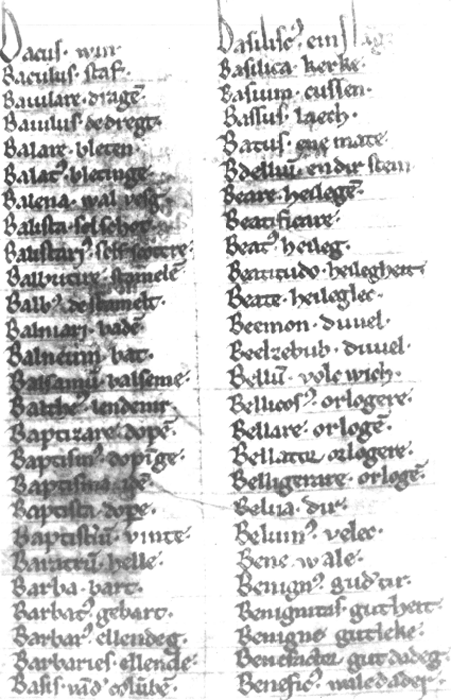 Bacus. win.
Baculus. staf.
Baiulare. dragē.
Baiulus. de dregt.
Balare. bleten.
Balatꝰ. bletinge.
Balena. wal
Balista. selscher
Balistariꝰ.
Balbutire. stamelē
Balbꝰ. de stamelt.
Balniari. badē.
Balneum. bat.
Balsamū. balseme.
Baltheꝰ. lendenir
Baptizare. dopē.
Baptismꝰ. dopīge.
Baptisma. idē.
Baptista. dope.
Baptistiū. vinte.
Baratrū. helle.
Barba. bart.
Barbatꝰ. gebart.
Barbarꝰ. ellendeg.
Barbaries. ellende.
Basis.
Basiliscꝰ. ein slag
Basilica. kerke.
Basium. cussen.
Bassus. laech.
Batus. ene mate.
Bdelliū. en dir stein
Beare. heilegē.
Beatificare.
Beatꝰ. heileg.
Beatitudo. heilegheit.
Beate. heileglec.
Beemon. duuel.
Beelzebub. duuel.
Beliū. volc wich.
Bellicosꝰ. orlogere.
Bellare. orlogē.
Bellator. orlogere.
Belligerare. orlogē.
Belua. dir.
Beluinꝰ. velec.
Bene. wale.
Benignꝰ. gud'tir.
Benignitas. gutheit.
Benigne. gutleke.
Benefactor. gutdadeg.
Beneficꝰ. waledader.